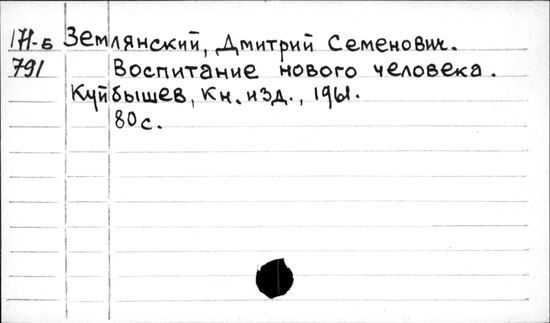 171-Б Землянский, Дмитрий Семенович.
791 Воспитание нового человека.
Куйбышев, Кн. изд., 1961.
80 с.